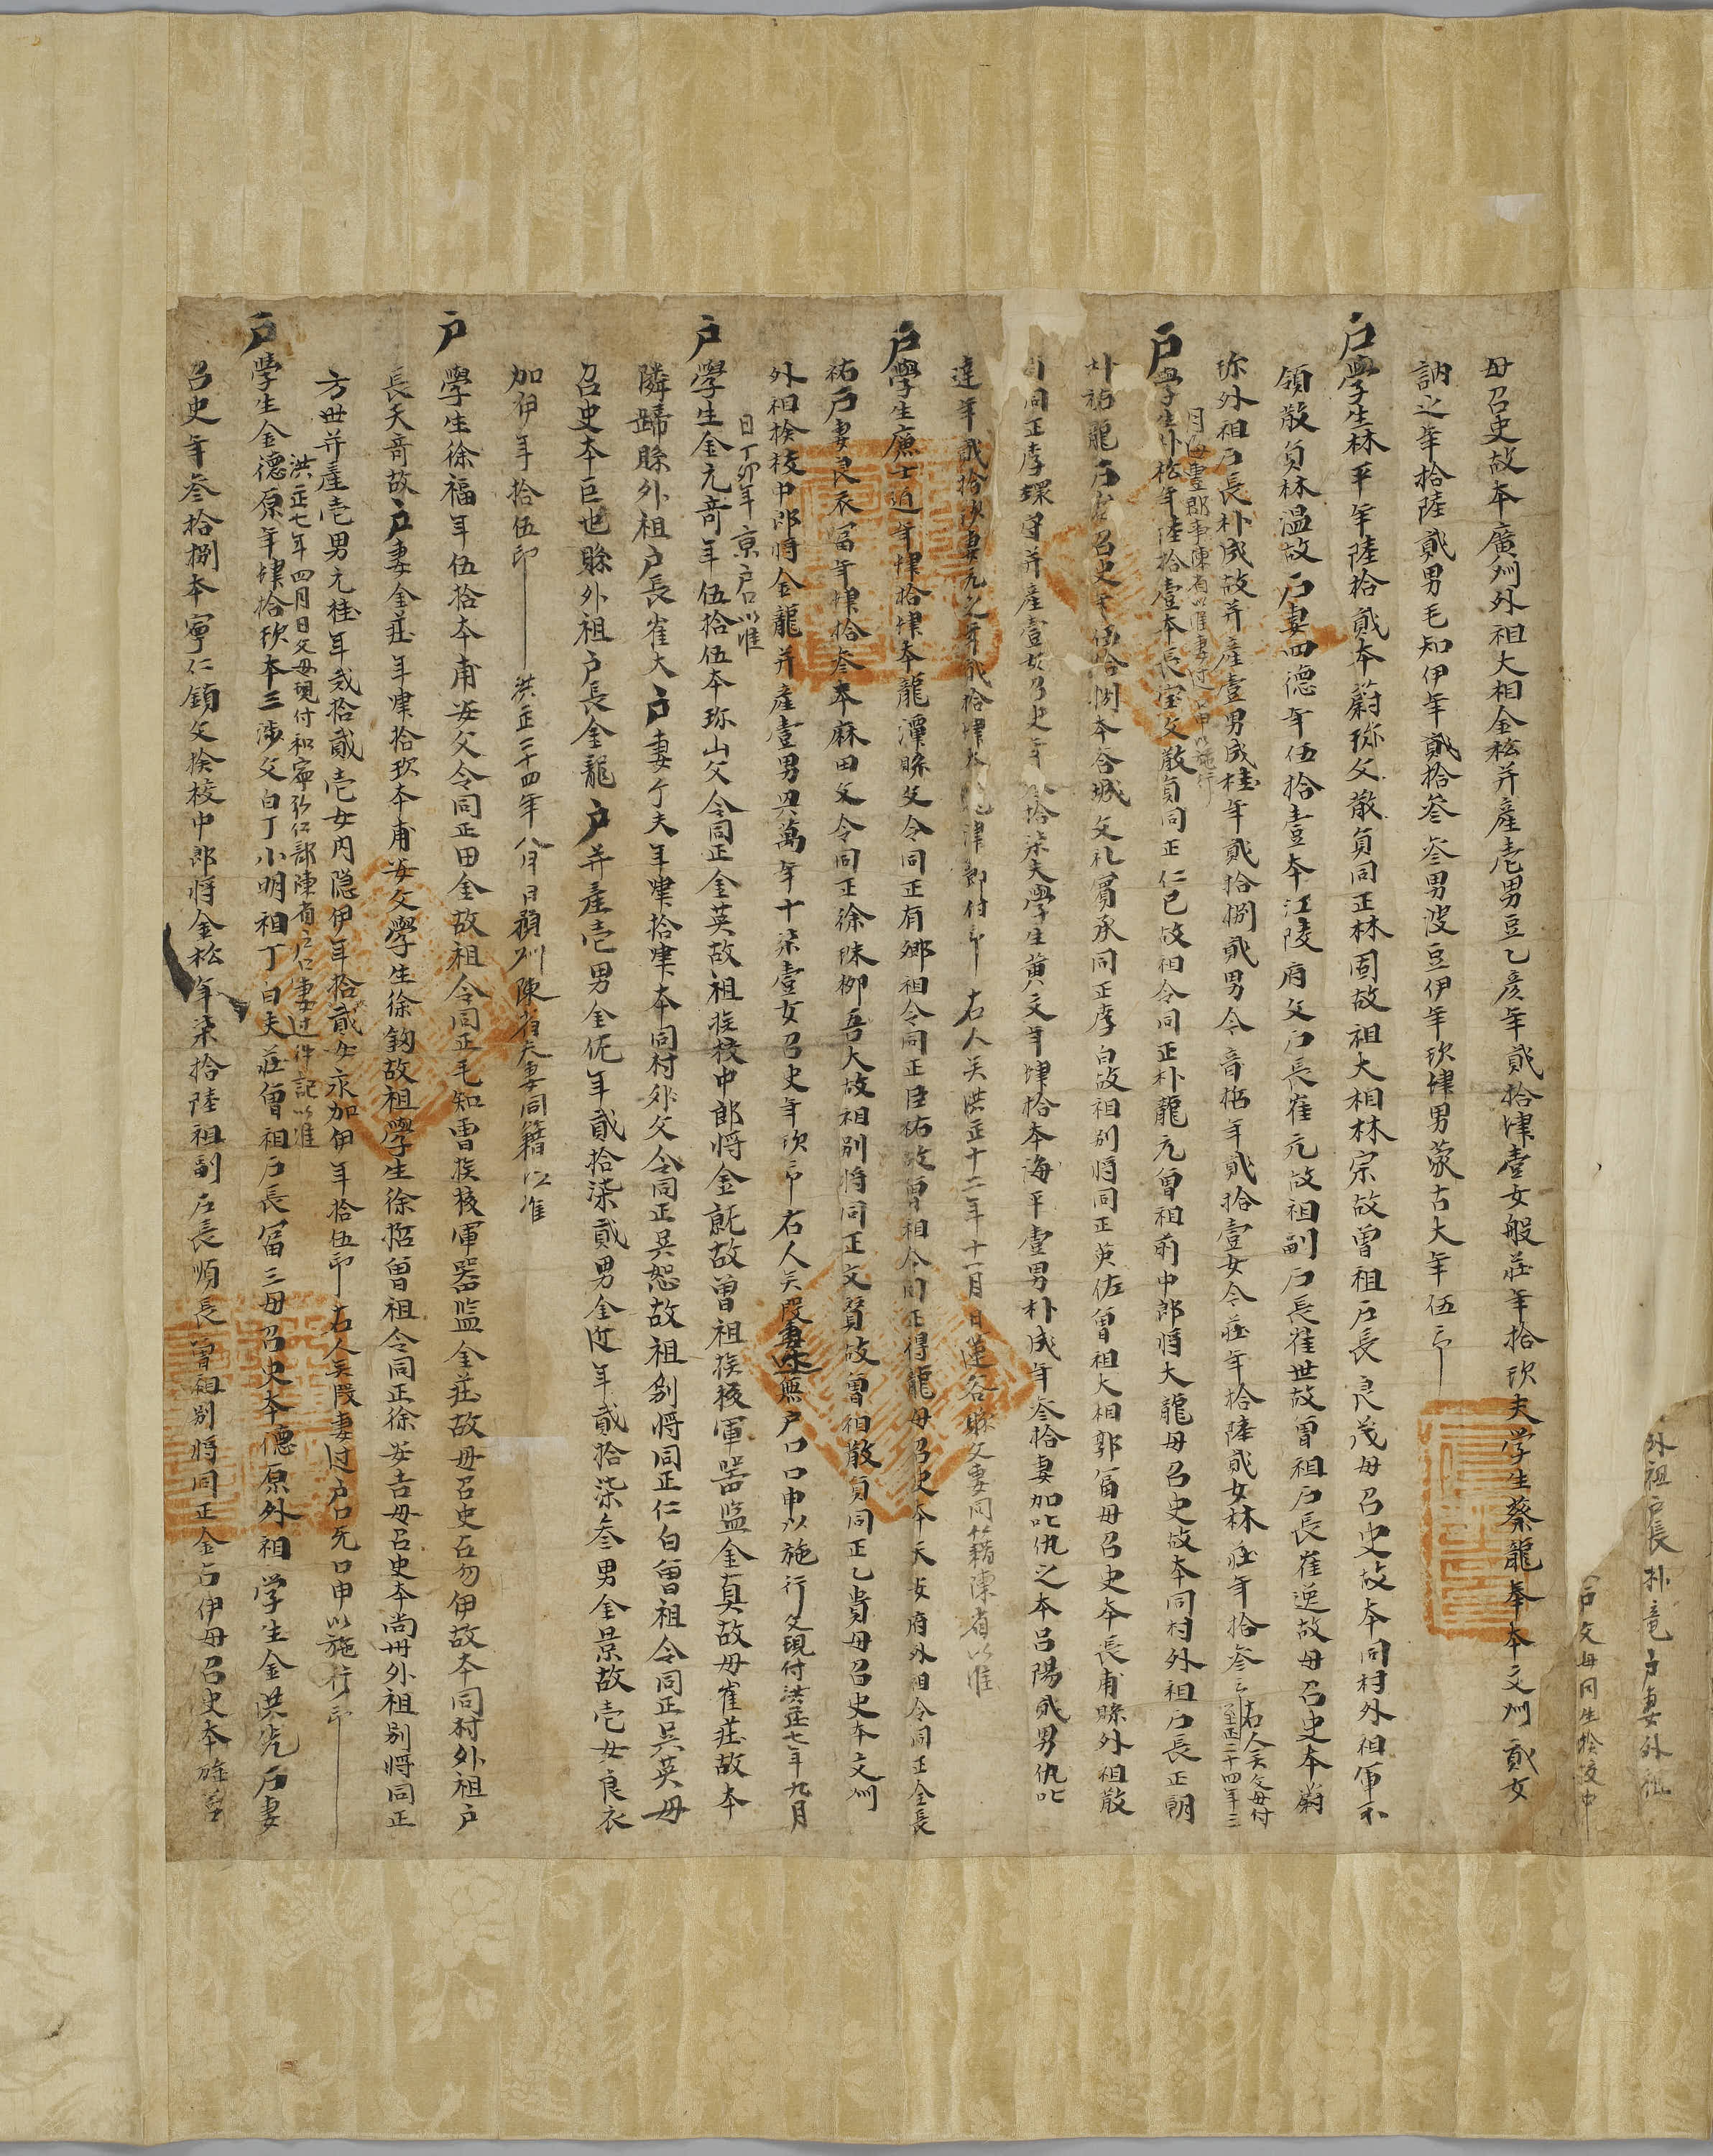 外祖戶長朴竜戶妻外祖
戶父母同生検校中
母召史故本廣州外祖大相金松幷産壱男豆乙彦年貳拾肆壹女般莊年拾玖夫学生蔡龍奉本文州貳女
訥之年拾陸貳男毛知伊年貳拾叄叄男波豆伊年玖肆男蒙古大年伍印
戶學生林平年陸拾貳本蔚珎父散員同正林固故祖大相林宗故曾祖戶長良茂母召史故本同村外祖軍不
領散員林溫故戶妻四德年伍拾壹本江陵府父戶長崔元故祖副戶長崔世故曾祖戶長崔逆故母召史本蔚
珎外祖戶長朴成故幷産壹男成桂年貳拾捌貳男令音㐚年貳拾壹女令莊年拾陸貳女林莊年拾叄印右人矣父母付
至正二十四年三
月海豊郡事陳省以准妻辻口申以施行
戶學生朴松年陸拾壹本長宝父散員同正仁己故祖令同正朴龍元曾祖前中郎將大龍母召史故本同村外祖戶長正朝
朴祐龍戶妻召史年伍拾捌本谷城父礼賓承同正李白故祖別將同正英佐曾祖大相郭冨母召史本長甫縣外祖散
員同正李環守幷産壹女召史年拾柒夫學生黃文年肆拾本海平壹男朴成年叄拾妻加叱仇之本呂陽貳男仇叱
達年貳拾玖妻九之年貳拾肆本津郡付印右人矣洪正十二年十一月日蓮谷縣父妻同籍陳省以准
戶學生廉士近年肆拾肆本龍潭縣父令同正有鄉祖令同正臣祐故曾祖令同正得龍母召史本天安府外祖令同正全長
祐戶妻良衣冨年肆拾叄本麻田父令同正徐株柳吾大故祖別將同正文質故曾祖散員同正乙貴母召史本文州
外祖検校中郎將金龍幷産壹男興萬年十柒壹女召史年玖印右人矣段妻味無戶口口申以施行父現付洪正七年九月
日丁卯年京戶口以准
戶學生金元奇年伍拾伍本珎山父令同正金英故祖検校中郎將金㫆故曾祖検校軍器监金真故母崔莊故本
隣蹄縣外祖戶長崔大戶妻亇夫年肆拾肆本同村外父令同正吴恕故祖別將同正仁白曾祖令同正吴英母
召史本巨也縣外祖戶長金龍戶幷産壱男金㐚年貳拾柒貳男金近年貳拾柒叄男金景故壱女良衣
加伊年拾伍印洪正二十四年八月日預州陳省夫妻同籍以准
戶學生徐福年伍拾本甫安父令同正田金故祖令同正毛知曾検校軍器监金莊故母召史五勿伊故本同村外祖戶
長天奇故戶妻金莊年肆拾玖本甫安父學生徐劔故祖學生徐㐚曾祖令同正徐安吉母召史本尚州外祖別將同正
方世幷産壱男元桂年貳拾貳壱女內隐伊年拾貳女永加伊年拾伍印右人矣段妻辻戶口无口申以施行印
洪正七年四月日父母現付和寧弘仁部陳省戶口妻辻件記以准
戶學生金德原年肆拾玖本三陟父白丁小明祖丁白夫莊曾祖戶長冨三母召史本德原外祖学生金洪光戶妻
召史年叄拾捌本寧仁鎮父検校中郎將金松年柒拾陸祖副戶長順長曾祖別將同正金占伊母召史本